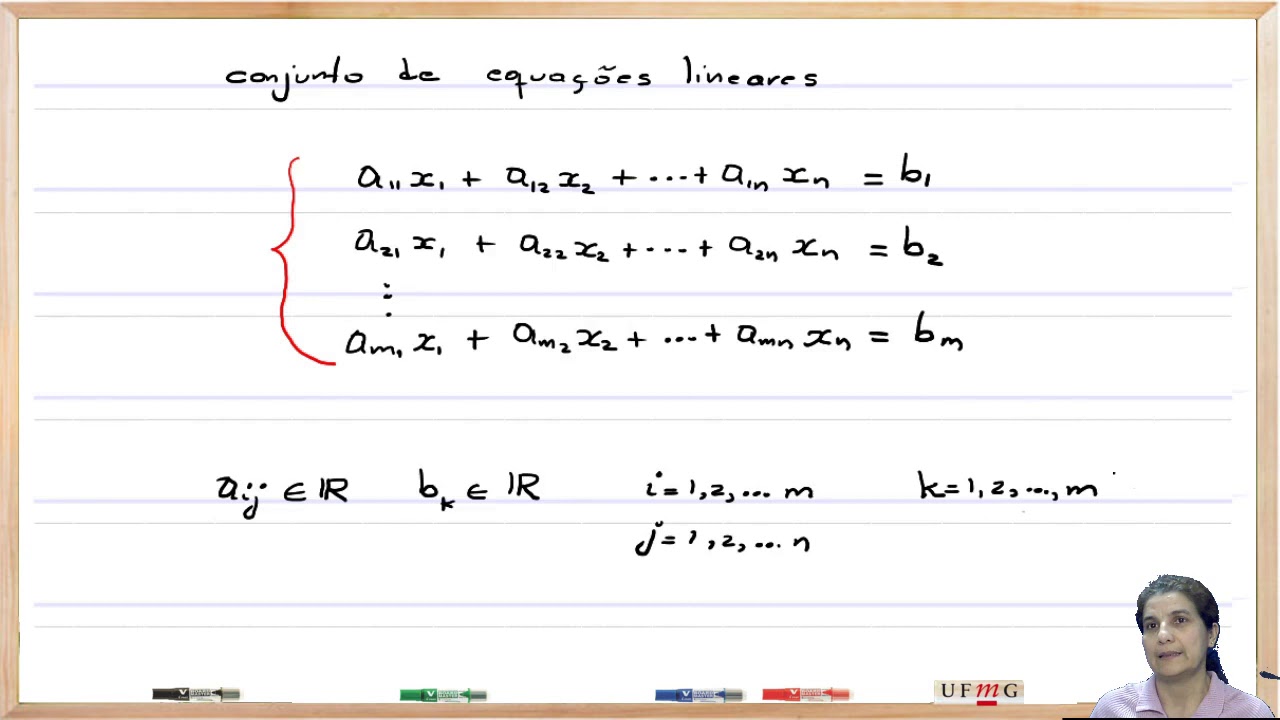 conjunto de equações lineares
a₁₁x₁ + a₁₂x₂ + ... + a₁ₙxₙ = b₁
a₂₁x₁ + a₂₂x₂ + ... + a₂ₙxₙ = b₂
⋮
aₘ₁x₁ + aₘ₂x₂ + ... + aₘₙxₙ = bₘ
aᵢⱼ ∈ ℝ bₖ ∈ ℝ i = 1, 2, ... m k = 1, 2, ..., m
j = 1, 2, ... n
UFmG